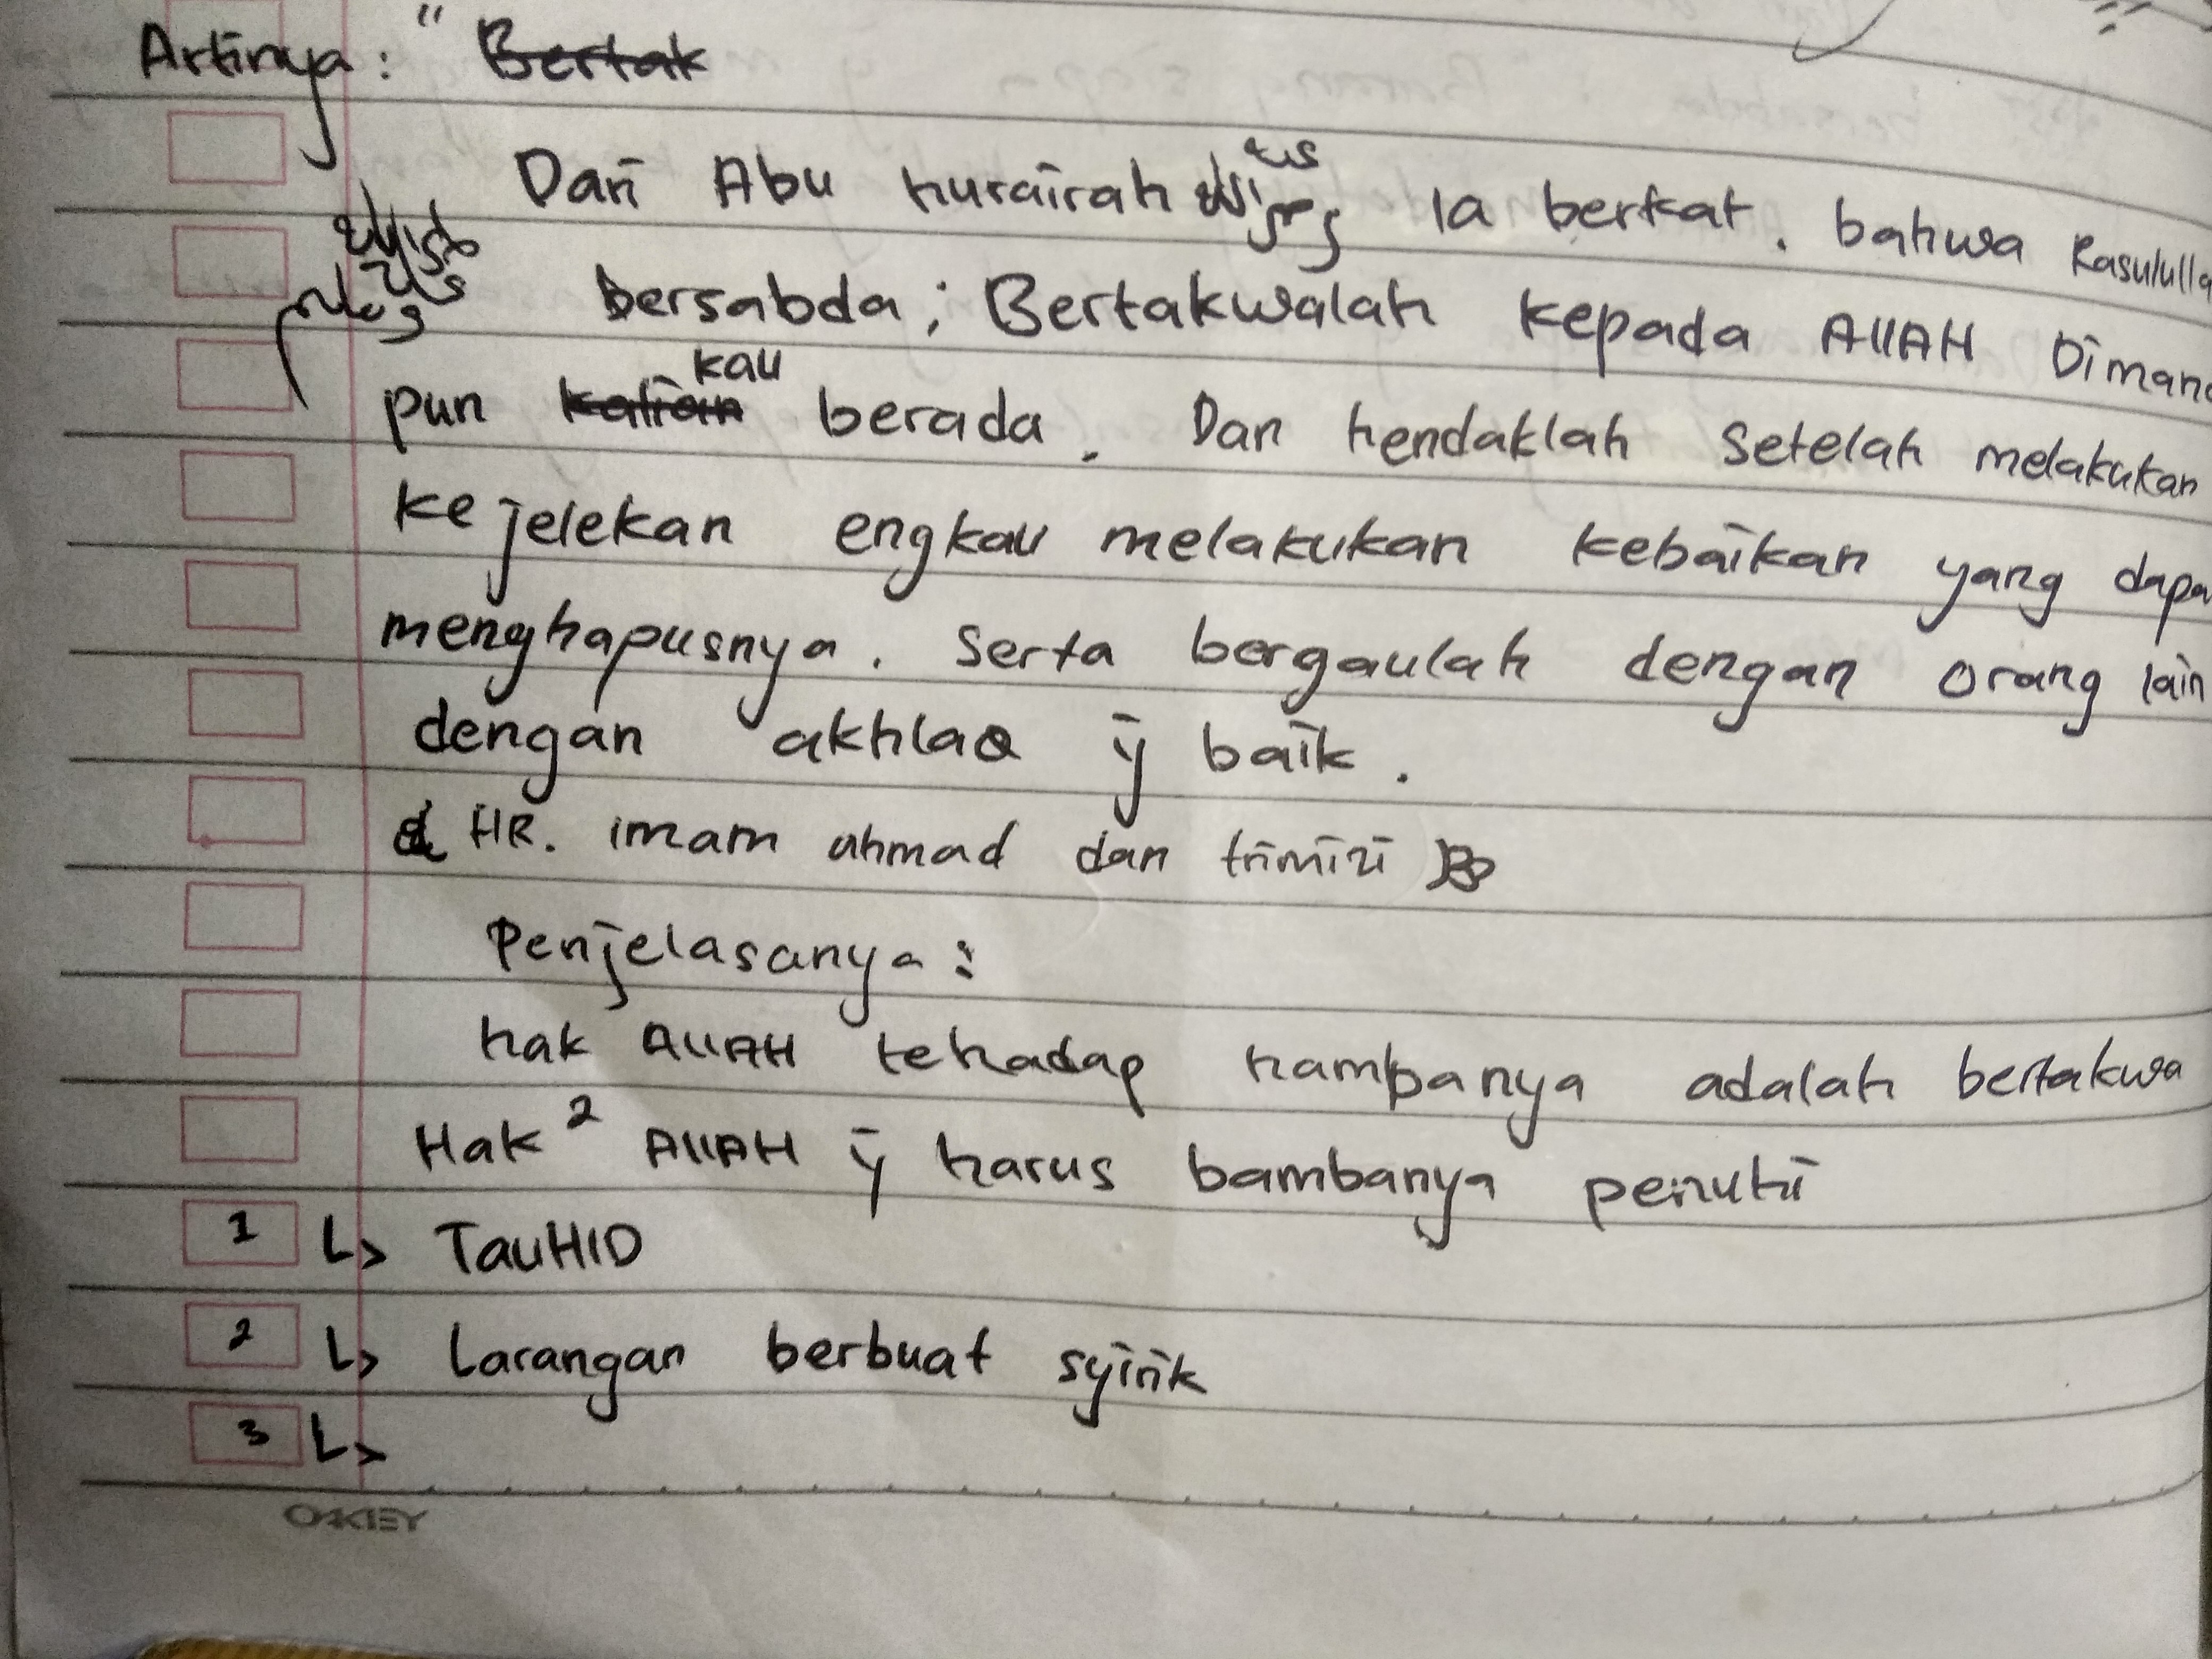 Artinya : "
Dari Abu hurairah رضي الله عنه Ia berkat. bahwa Rasululla
صلى الله عليه وسلم bersabda; Bertakwalah kepada AllAH Dimana
pun kau berada. Dan hendaklah setelah melakukan
kejelekan engkau melakukan kebaikan yang dapa
menghapusnya. Serta bergaulah dengan orang lain
dengan akhlaQ ȳ baik.
HR. imam ahmad dan trimizi
Penjelasanya :
hak AllAH tehadap hambanya adalah bertakwa
Hak² AllAH ȳ harus bambanya penuhi
1 ↳ TauHID
2 ↳ Larangan berbuat syirik
3 ↳
OAKIEY